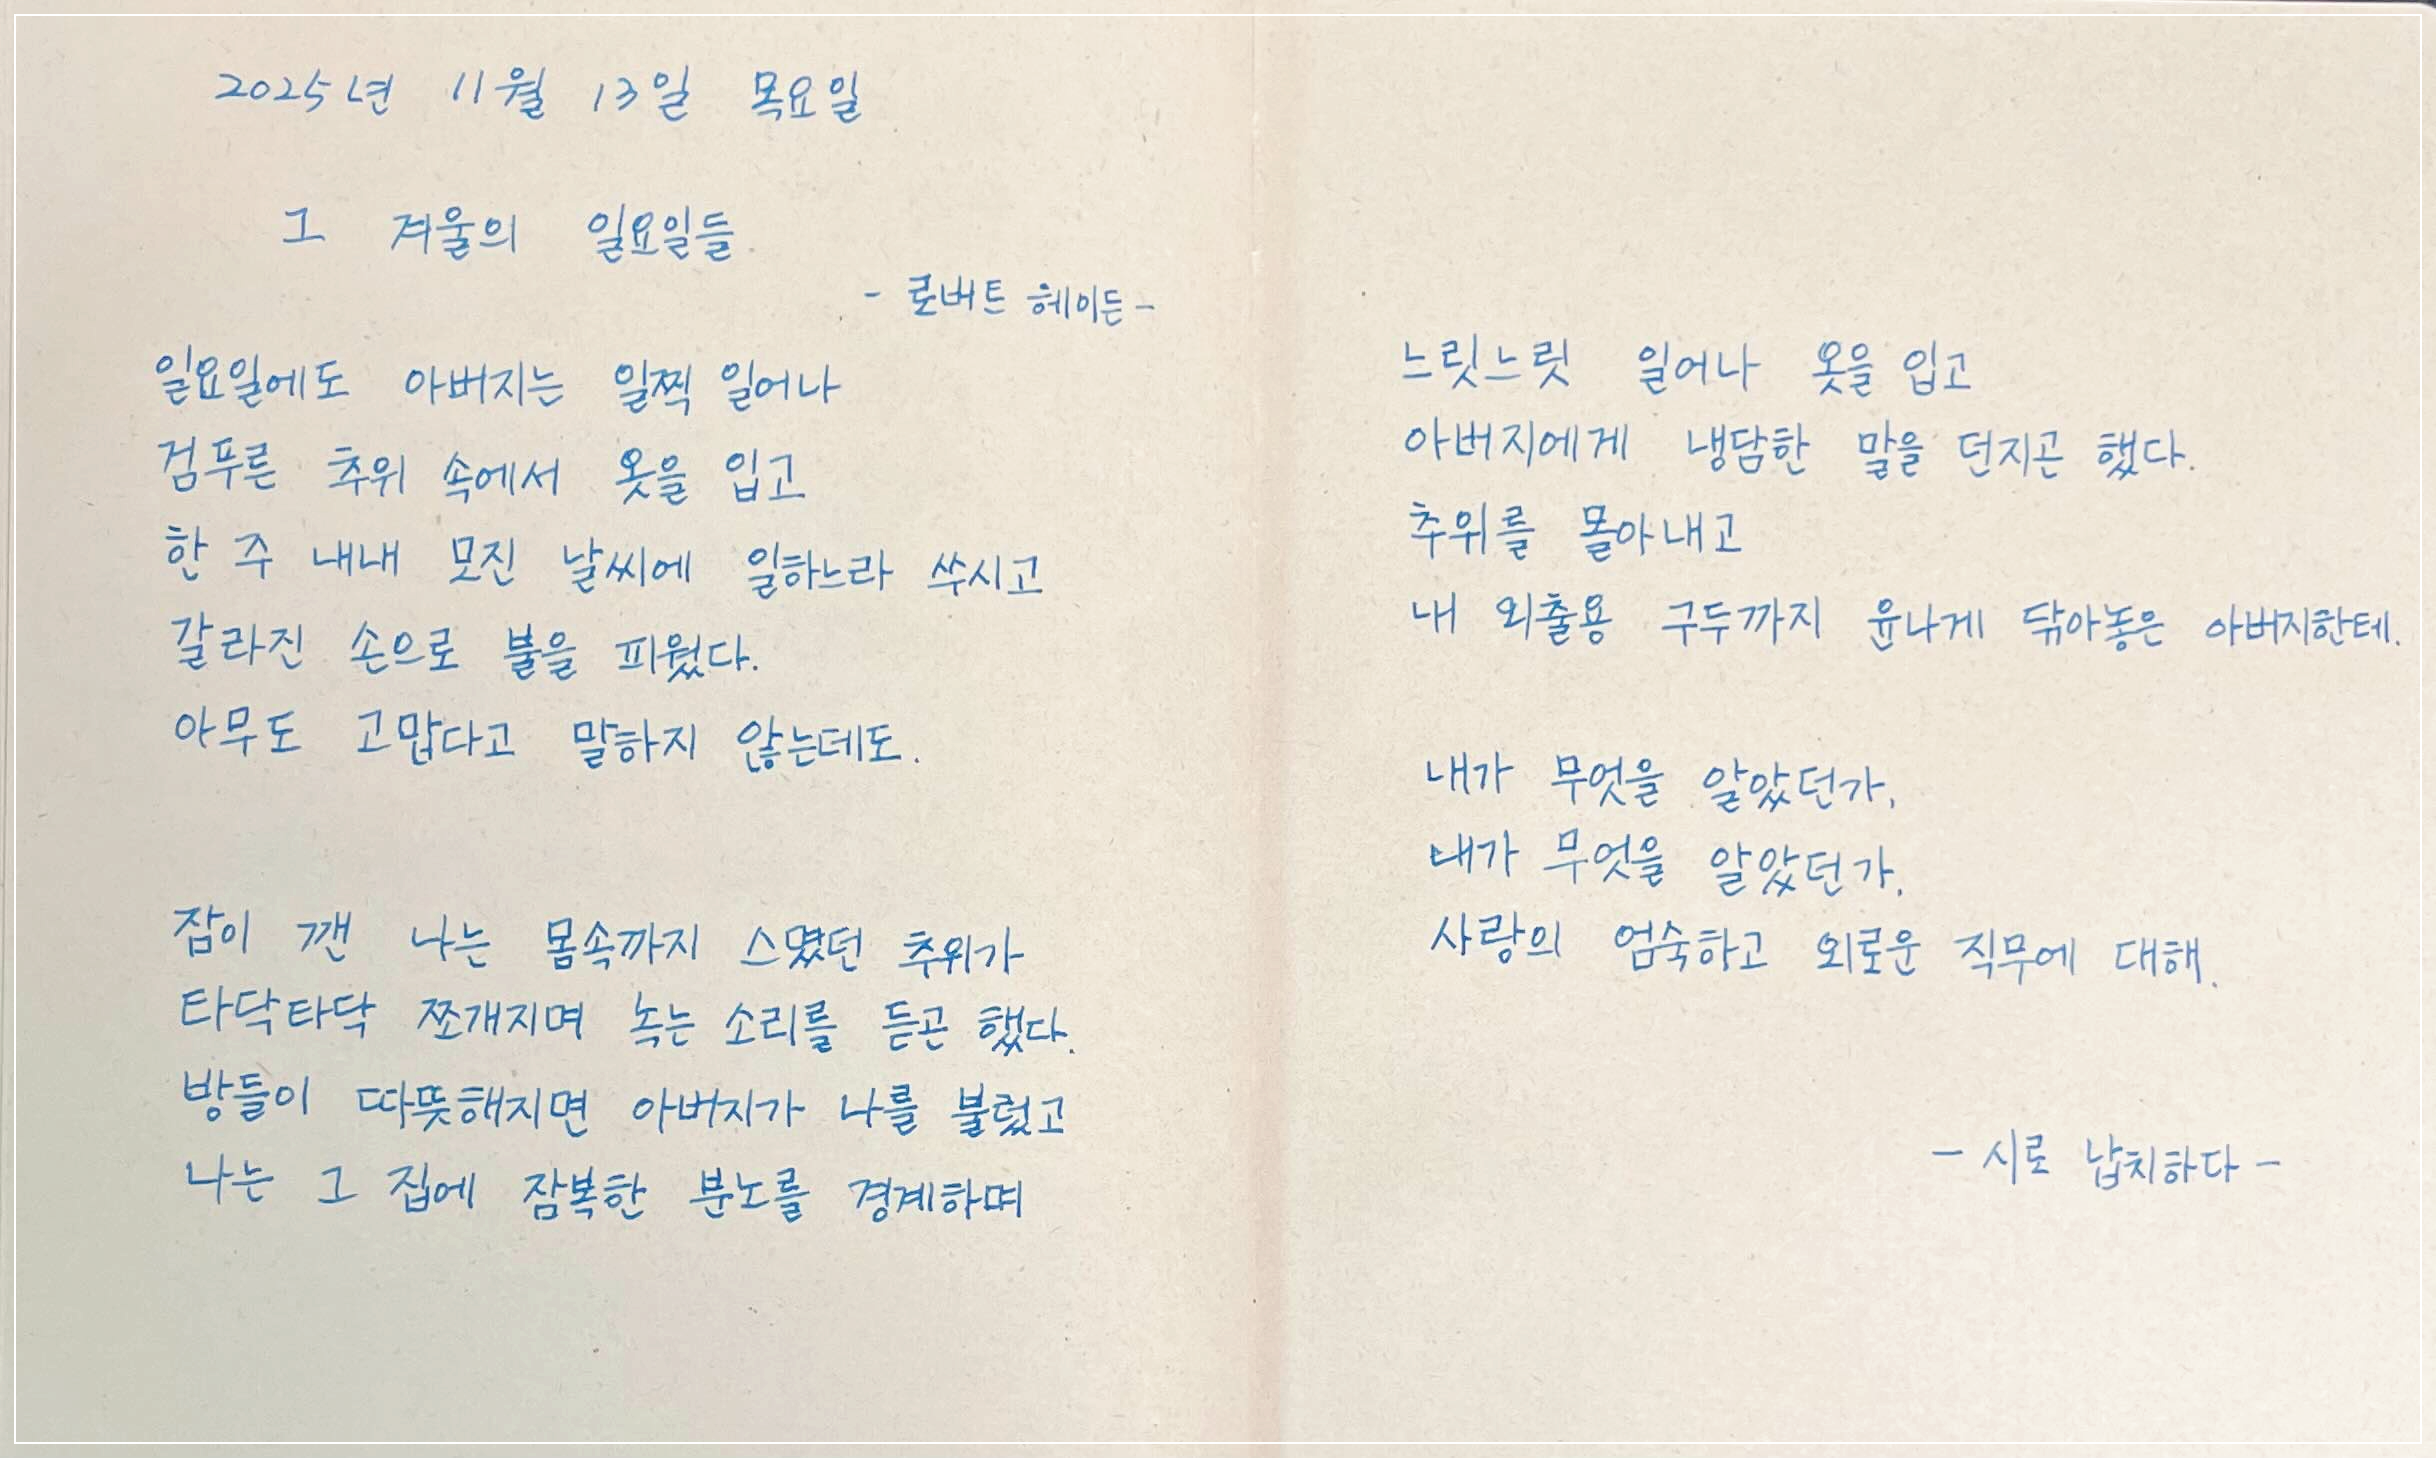 2025년 11월 13일 목요일
그 겨울의 일요일들.
- 로버트 헤이든 -
일요일에도 아버지는 일찍 일어나
검푸른 추위 속에서 옷을 입고
한 주 내내 모진 날씨에 일하느라 쑤시고
갈라진 손으로 불을 피웠다.
아무도 고맙다고 말하지 않는데도.
잠이 깬 나는 몸속까지 스몄던 추위가
타닥타닥 쪼개지며 녹는 소리를 듣곤 했다.
방들이 따뜻해지면 아버지가 나를 불렀고
나는 그 집에 잠복한 분노를 경계하며
느릿느릿 일어나 옷을 입고
아버지에게 냉담한 말을 던지곤 했다.
추위를 몰아내고
내 외출용 구두까지 윤나게 닦아놓은 아버지한테.
내가 무엇을 알았던가,
내가 무엇을 알았던가,
사랑의 엄숙하고 외로운 직무에 대해.
- 시로 납치하다 -